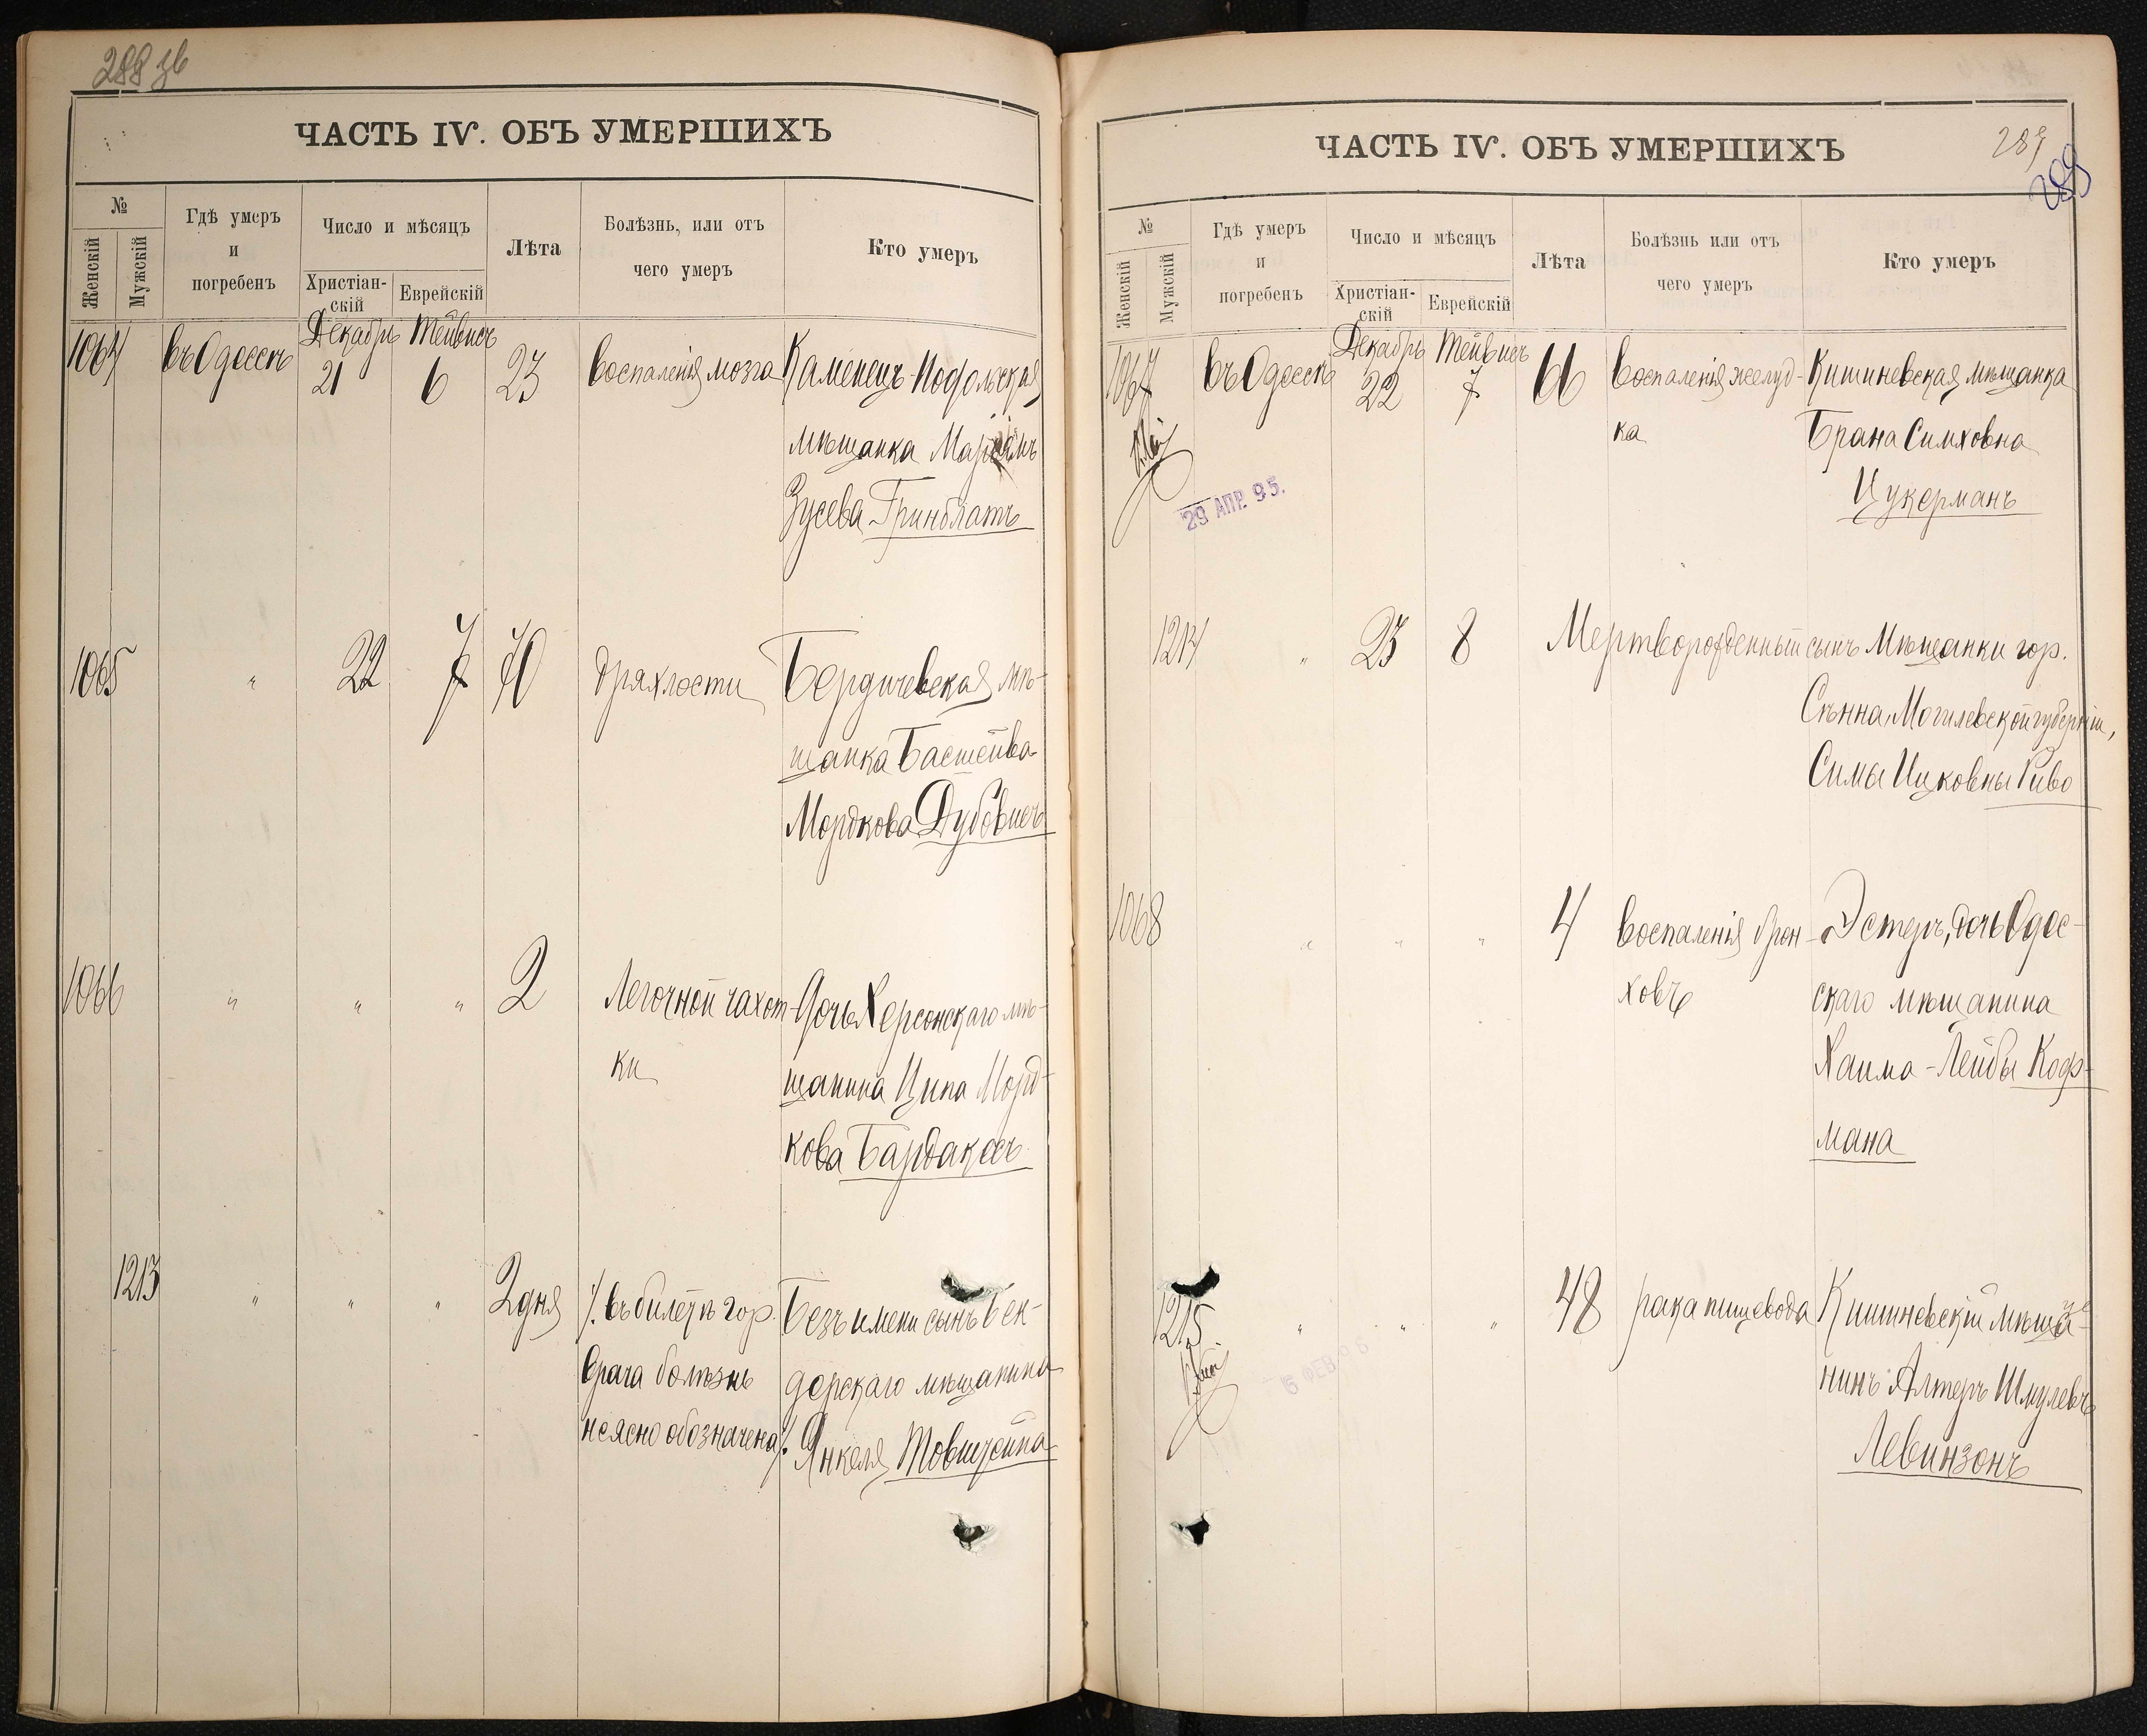 288 зв
ЧАСТЬ IV. ОБЪ УМЕРШИХЪ
№
Женскій
Мужскій
Гдѣ умеръ
и
погребенъ
Число и мѣсяцъ
Христіан-
скій
Еврейскій
Лѣта
Болѣзнь, или отъ
чего умеръ
Кто умеръ
Декабрь Тейвисъ
1064 въ Одессѣ 21 6 23 воспаленія мозга Каменецъ-Подольская
мѣщанка Маріямъ
Зусева Гринблатъ
1065 " 22 7 70 дряхлости Бердичевская мѣ-
щанка Бастейва
Мордкова Дубовисъ
1066 " " " 2 Легочной чахот- Дочь Херсонскаго мѣ-
ки щанина Ципа Морд-
кова Бардакесъ
1213 " " " 2 дня /. въ билетѣ гор. Безъ имени сынъ Бен-
врача болѣзнь дерскаго мѣщанина
неясно обозначена /. Янкеля Товштейна
289
289
ЧАСТЬ IV. ОБЪ УМЕРШИХЪ
№
Женскій
Мужскій
Гдѣ умеръ
и
погребенъ
Число и мѣсяцъ
Христіан-
скій
Еврейскій
Лѣта
Болѣзнь или отъ
чего умеръ
Кто умеръ
Декабрь Тейвисъ
1067 въ Одессѣ 22 7 61 Воспаленія желуд- Кишиневская мѣщанка
ка Брана Симховна
Цукерманъ
29 АПР. 95.
1214 " 23 8 Мертворожденный сынъ Мѣщанки гор.
Сѣнна, Могилевской губерніи,
Симы Ицковны Риво
1068 " " " 4 Воспаленія брон- Эстеръ, дочь Одес-
ховъ скаго мѣщанина
Хаима-Лейбы Коф-
мана
1215 " " " 48 рака пищевода Кишиневскій мѣща-
нинъ Алтеръ Шмулевъ
Левинзонъ